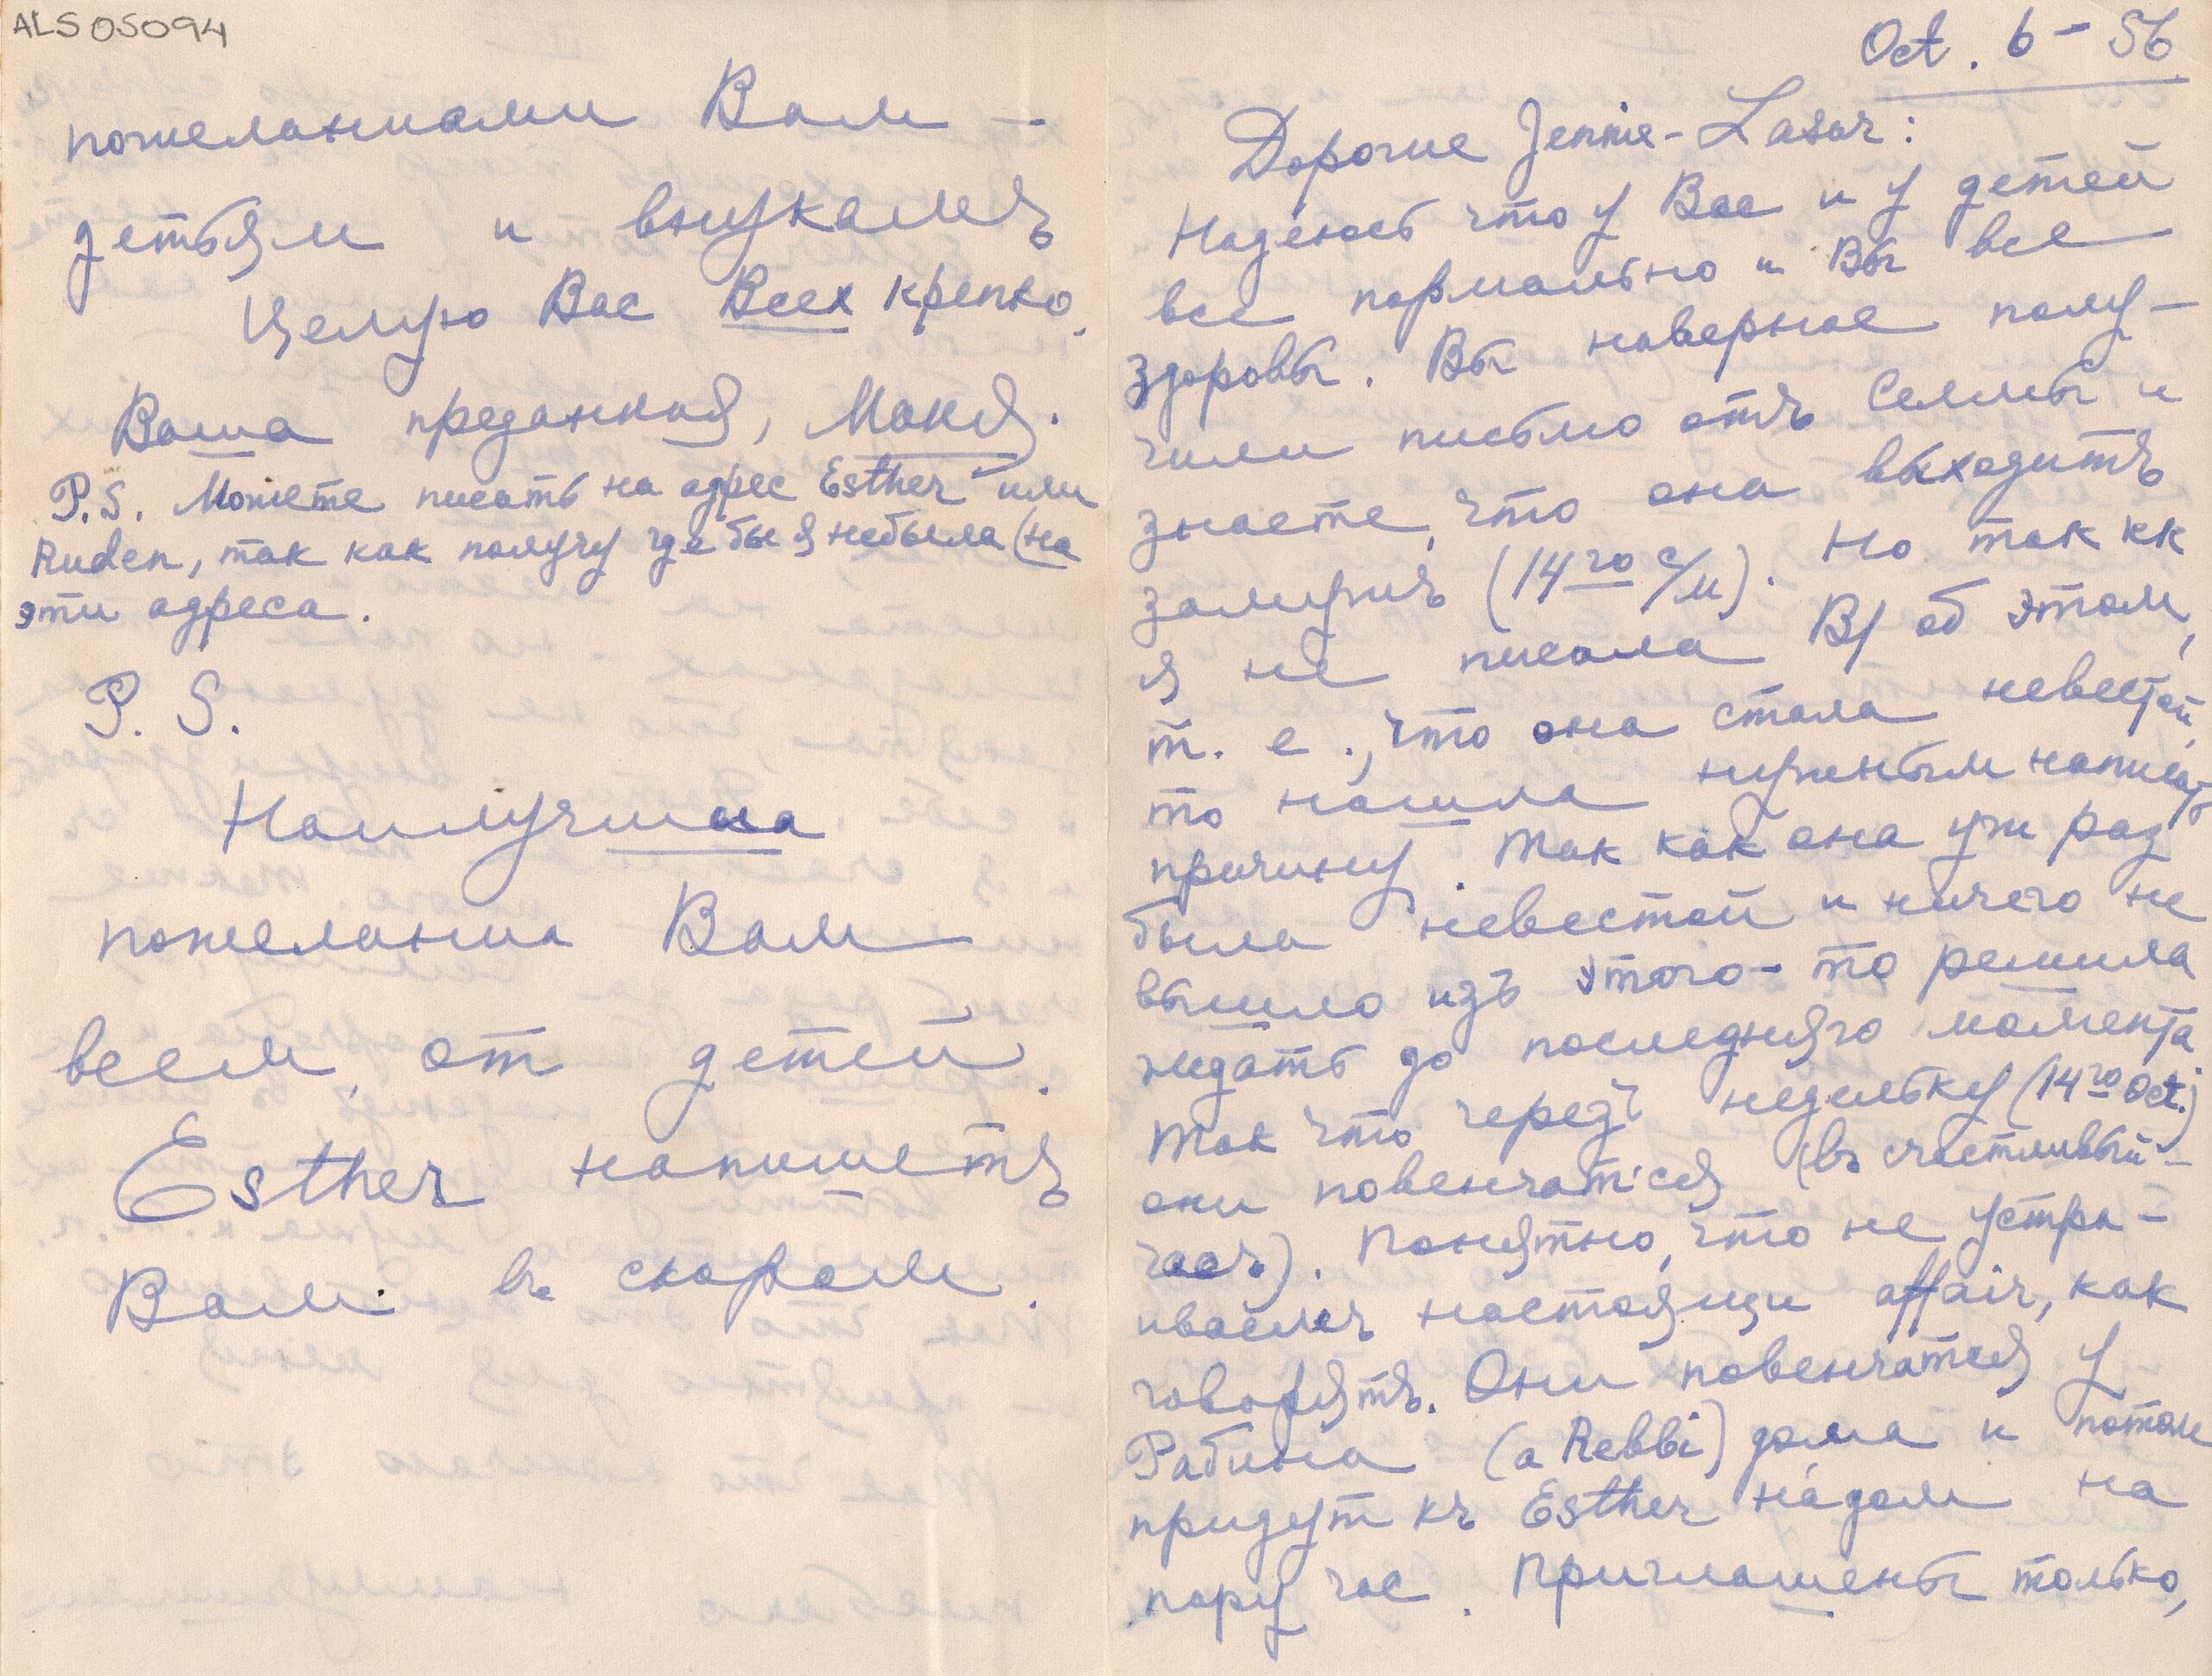 ALS 05094
Oct. 6 - 56
Дорогие Jennie - Lasar:
Надеюсь что у Вас и у детей
все нормально и Вы все
здоровы. Вы наверное полу-
чили письмо отъ Селмы и
знаете, что она выходитъ
замужъ (14го с/м). Но так кк
я не писала В/ об этом,
т. е., что она стала невестой,
то нашла нужным написать
причину. Так как она уж раз
была невестой и ничего не
вышло изъ этого - то решила
ждать до последняго момента
Так что черезъ недельку (14го Oct.)
они повенчаться (въ счастливый -
часъ). Понятно, что не устра -
иваемъ настоящи affair, как
говорятъ. Они повенчатся у
Рабина (a Rebbi) дома и потом
придут къ Esther надом на
пару час. Приглашены только,
пожеланиами Вам -
детьям и внукамъ
Целую Вас Всех крепко.
Ваша преданная, Маня.
P.S. Можете писать на адрес Esther или
Ruden, так как получу где бы я небыла (на
эти адреса.
P. S.
Наилучшиа
пожеланиа Вам
всем, от детей.
Esther напишетъ
Вам въ скором.